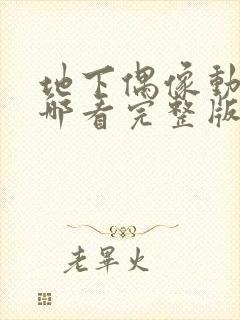 地下偶像動
哪看完整版
老畢火